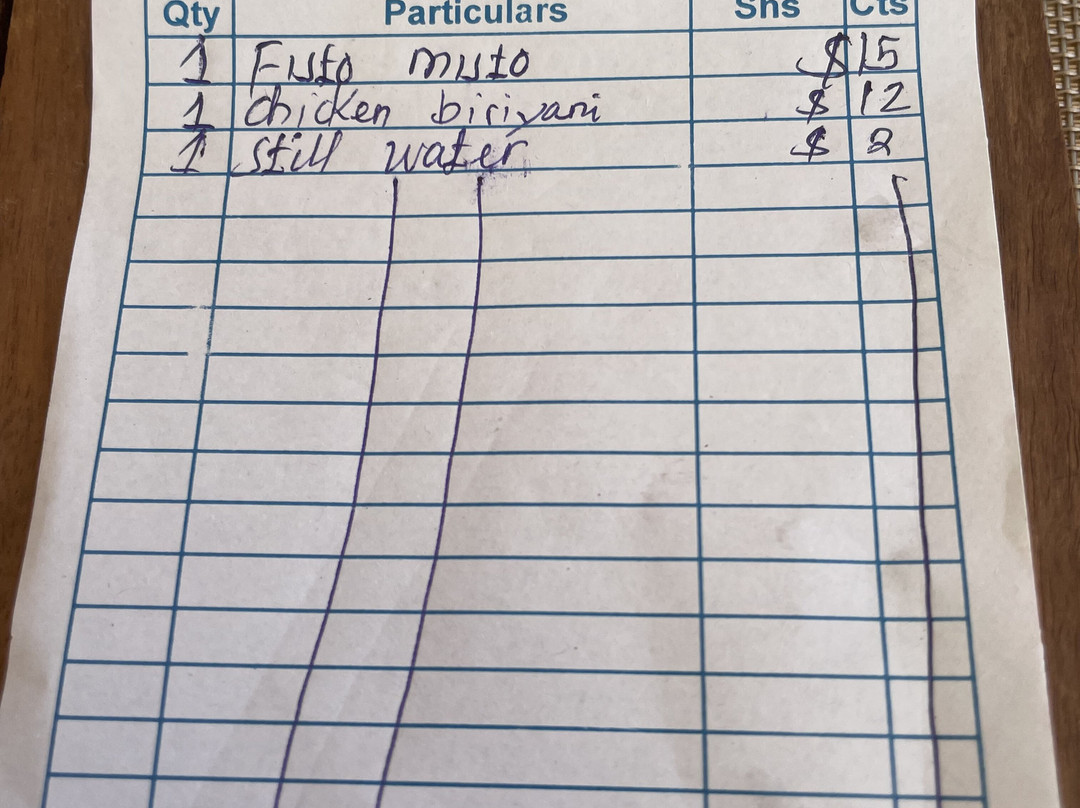 Qty Particulars Shs Cts
1 Fufo muto $ 15
1 Chicken biriyani $ 12
1 Still water $ 2